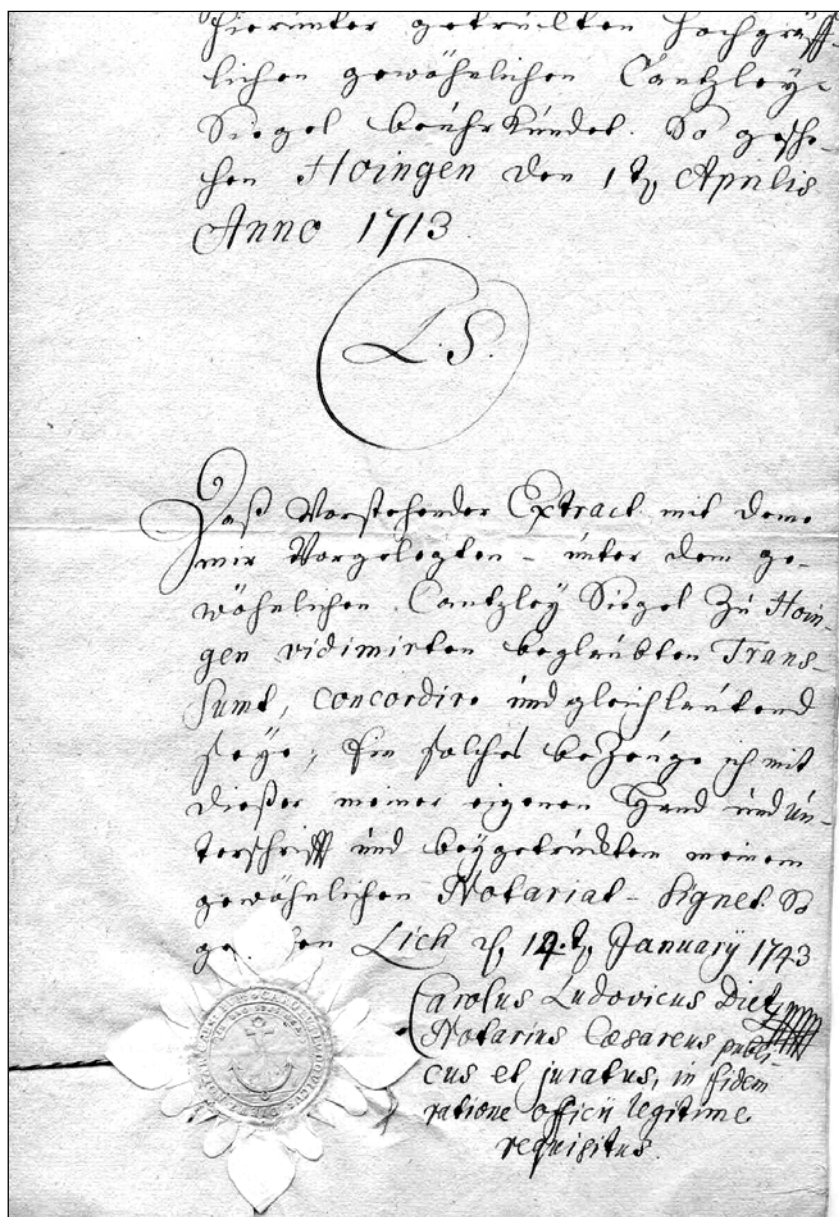 hierunter getrückten Hochgräff-
lichen gewöhnlichen Cantzley-
Siegel beuhrkundet. So gesche-
hen Hoingen den 1t. Aprilis
Anno 1713
L. S.
Daß Vorstehender Extract mit deme
mir Vorgelegten - unter dem ge-
wöhnlichen Cantzley Siegel zu Hoin-
gen vidimirten beglaubten Trans-
sumt, concordire und gleichlautend
seye, Ein solches bezeuge ich mit
dießer meiner eigenen Hand und Un-
terschrifft und beygetrücktem meinem
gewöhnlichen Notariat-Signet. So
Lich d. 14.t. January 1743
Carolus Ludovicus Dietz
Notarius Cæsareus publi-
cus et juratus, in fidem
ratione officii legitime
requisitus.